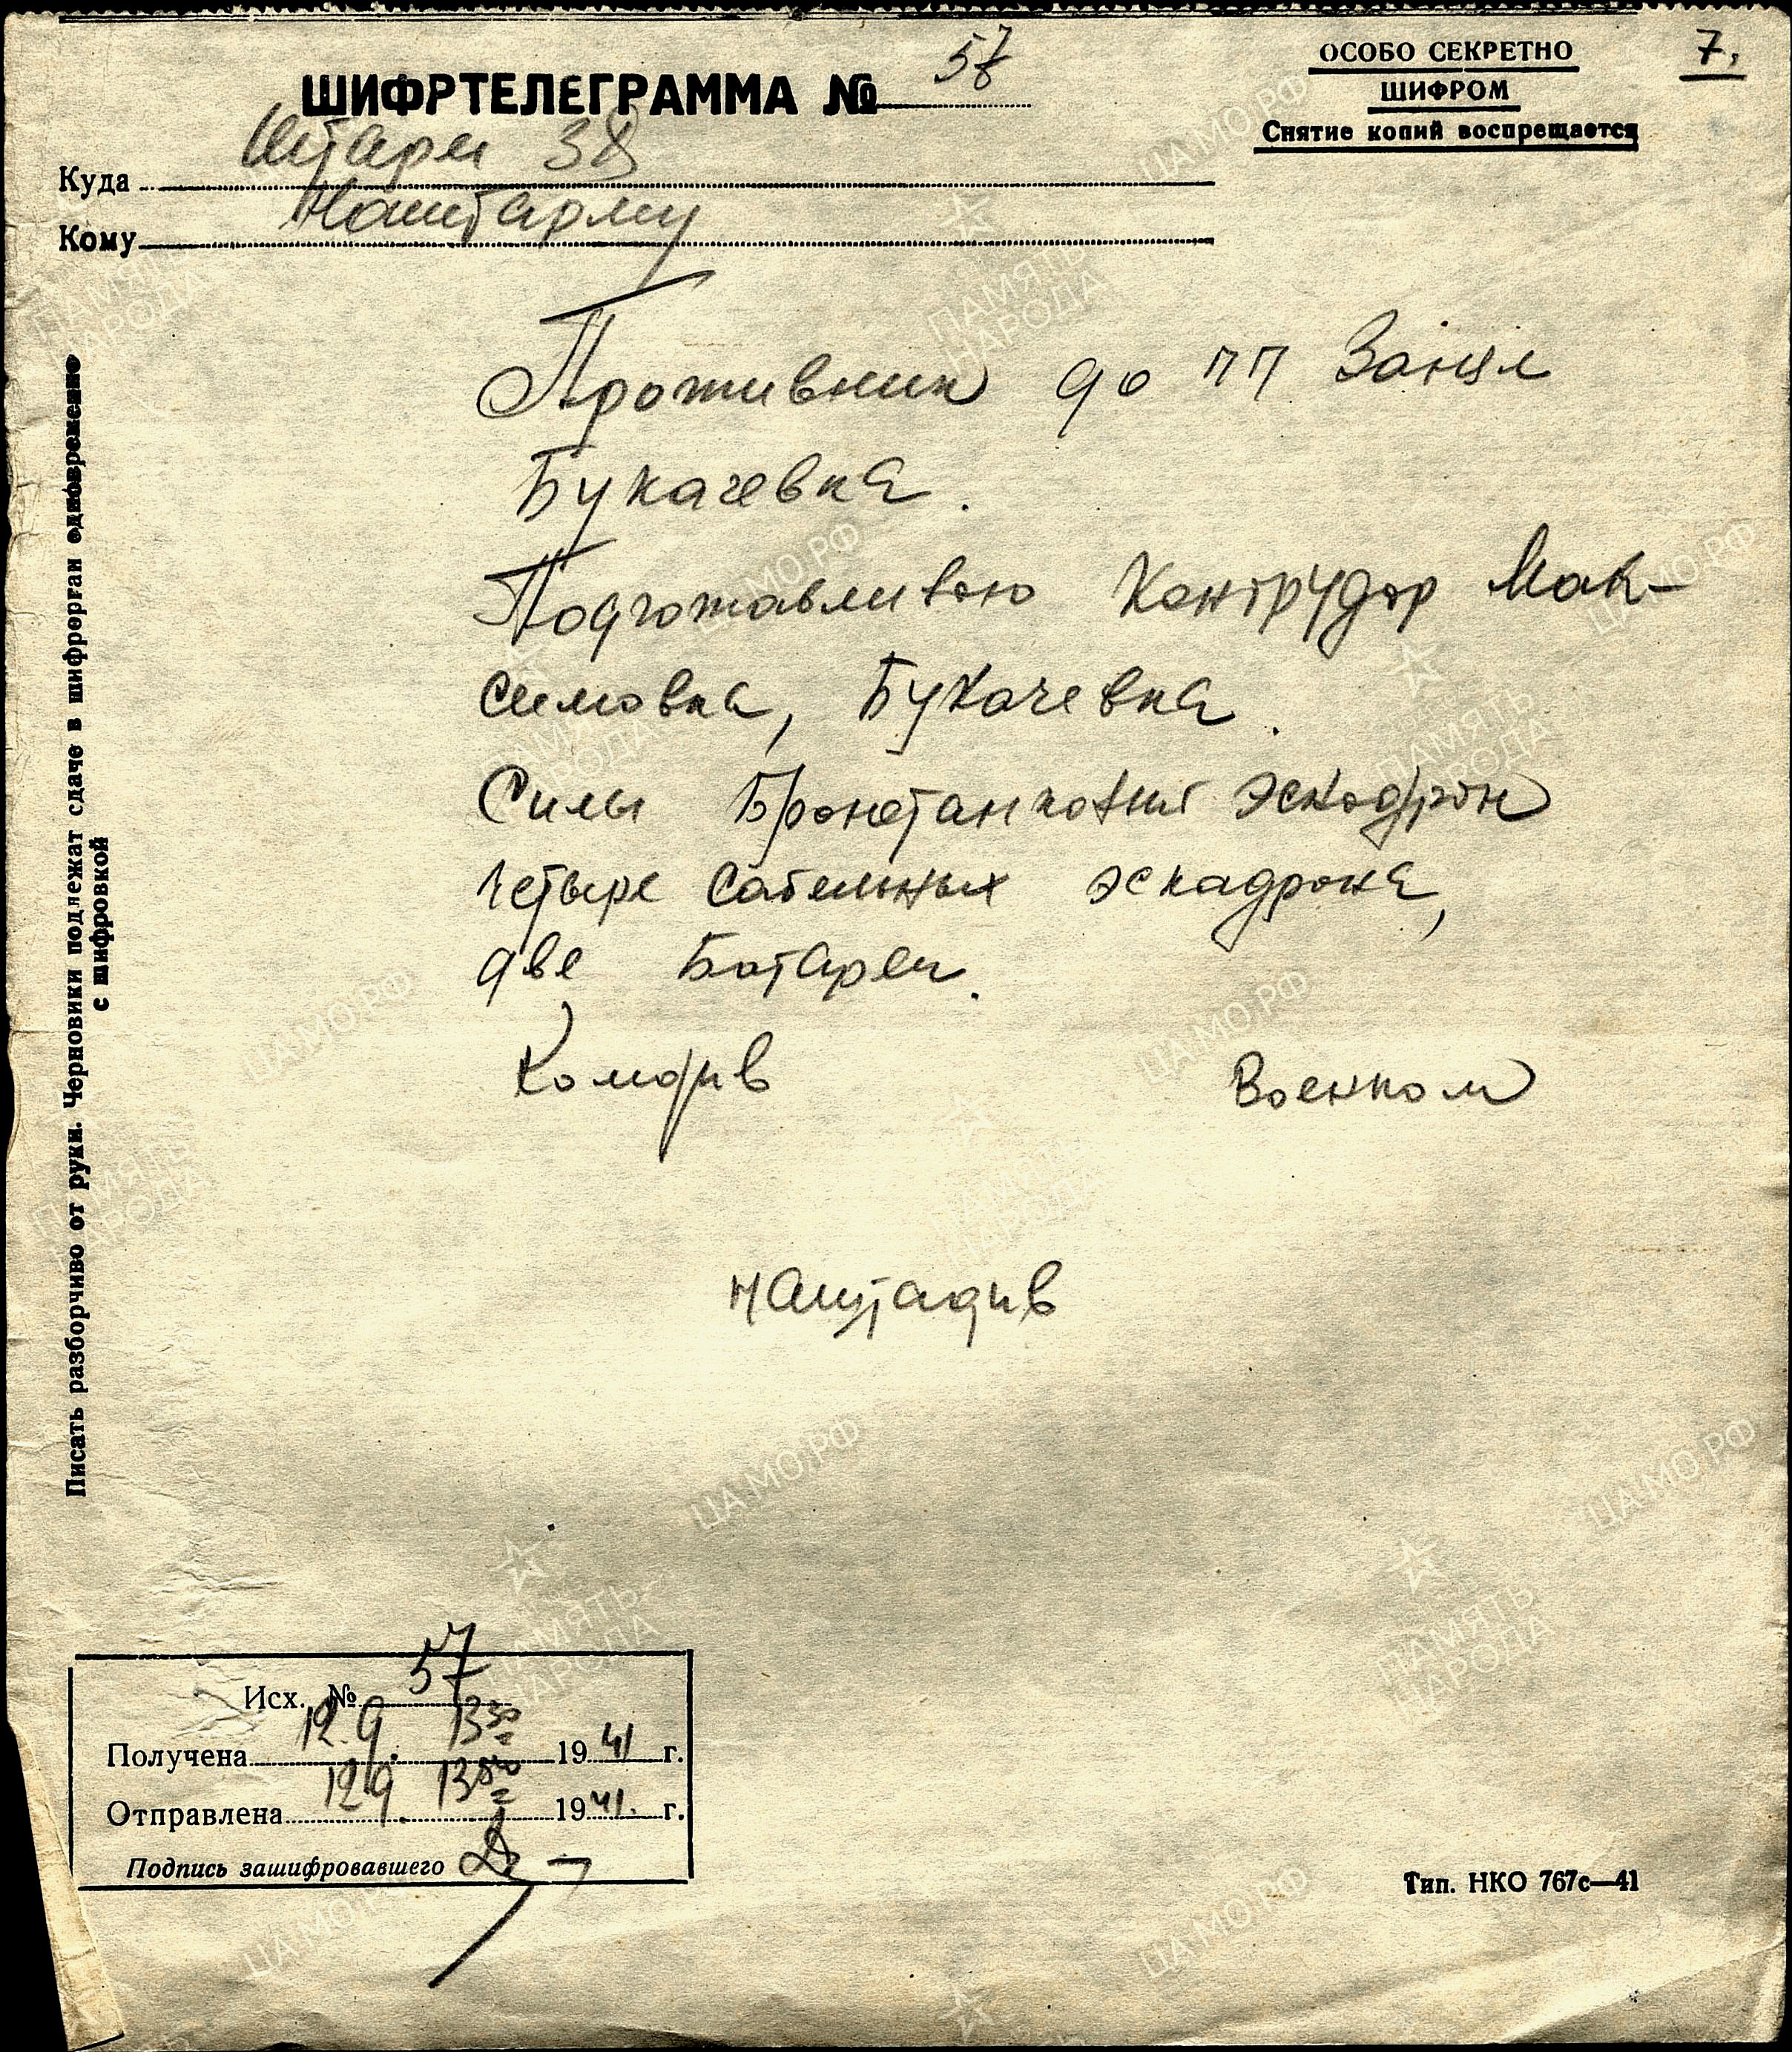 ШИФРТЕЛЕГРАММА № 57
ОСОБО СЕКРЕТНО
ШИФРОМ
Снятие копий воспрещается
7.
Куда Штарм 38
Кому Наштарму
Противник до пп Занял
Букачевка.
Подготавливаю Контрудар Мак-
симовка, Букачевка.
Силы Бронетанковый эскадрон
четыре сабельных эскадрона,
две Батареи.
Комдив Военком
наштадив
Писать разборчиво от руки. Черновики подлежат сдаче в шифрорган одновременно
с шифровкой
Исх. № 57
Получена 12.9. 13 30 1941 г.
Отправлена 12.9. 13 50 1941. г.
Подпись зашифровавшего
Тип. НКО 767с—41
ПАМЯТЬ НАРОДА
ЦАМО.РФ